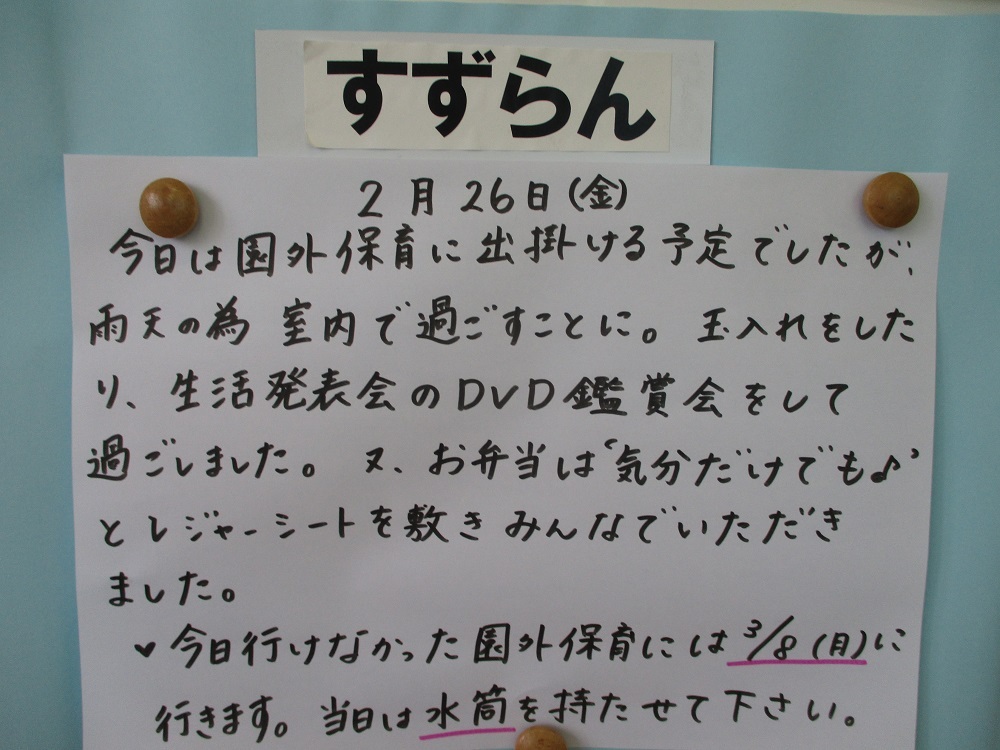 すずらん
2月26日(金)
今日は園外保育に出掛ける予定でしたが、
雨天の為 室内で過ごすことに。 玉入れをした
り、生活発表会のDVD鑑賞会をして
過ごしました。 又、お弁当は‘気分だけでも♪’
とレジャーシートを敷きみんなでいただき
ました。
♥今日行けなかった園外保育には3/8(月)に
行きます。当日は水筒を持たせて下さい。